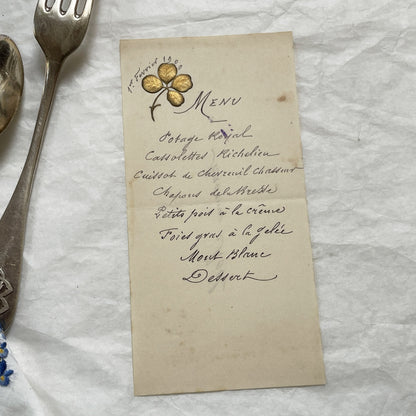 1er Février 1900
Menu
Potage Royal
Cassolettes Richelieu
Cuissot de Chevreuil Chasseur
Chapons de la Bresse
Petits pois à la crême
Foies gras à la gelée
Mont Blanc
Dessert